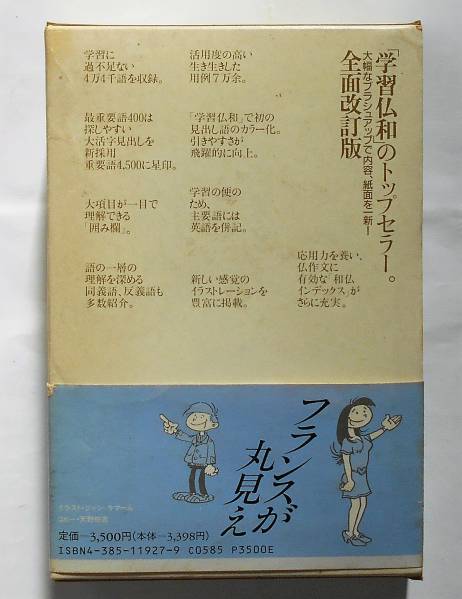 「学習仏和」のトップセラー。
大幅なブラッシュアップで内容、紙面を一新！
全面改訂版
学習に
過不足ない
4万4千語を収録。
活用度の高い
生き生きした
用例7万余。
最重要語400は
探しやすい
大活字見出しを
新採用
重要語4,500に星印。
「学習仏和」で初の
見出し語のカラー化。
引きやすさが
飛躍的に向上。
大項目が一目で
理解できる
「囲み欄」。
学習の便の
ため、
主要語には
英語を併記。
語の一層の
理解を深める
同義語、反義語も
多数紹介。
新しい感覚の
イラストレーションを
豊富に掲載。
応用力を養い、
仏作文に
有効な「和仏
インデックス」が
さらに充実。
フランスが
丸見え
イラスト・ジャン・
コピー・天野
定価＝3,500円（本体＝3,398円）
ISBN4-385-11927-9 C0585 P3500E